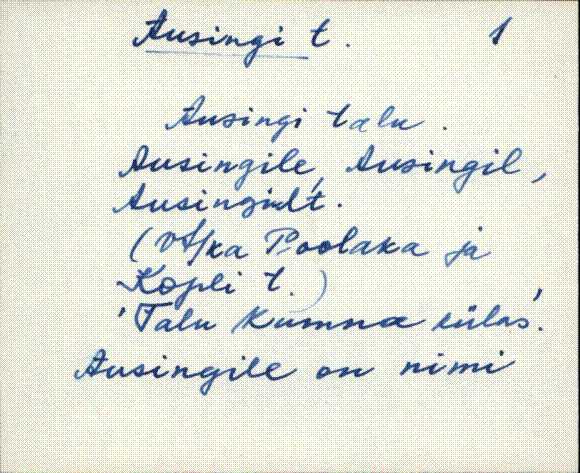 Ausingi t. 1
Ausingi talu.
Ausingile, Ausingil,
Ausingilt.
(Vt/ka Poolaka ja
Kopli t.)
'Talu Kumna külas'.
Ausingile on nimi